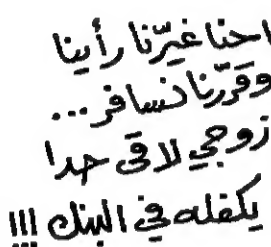 احنا غيّرنا رأينا
وقررنا نسافر...
زوجي لاقى حدا
يكفله في البنك !!!